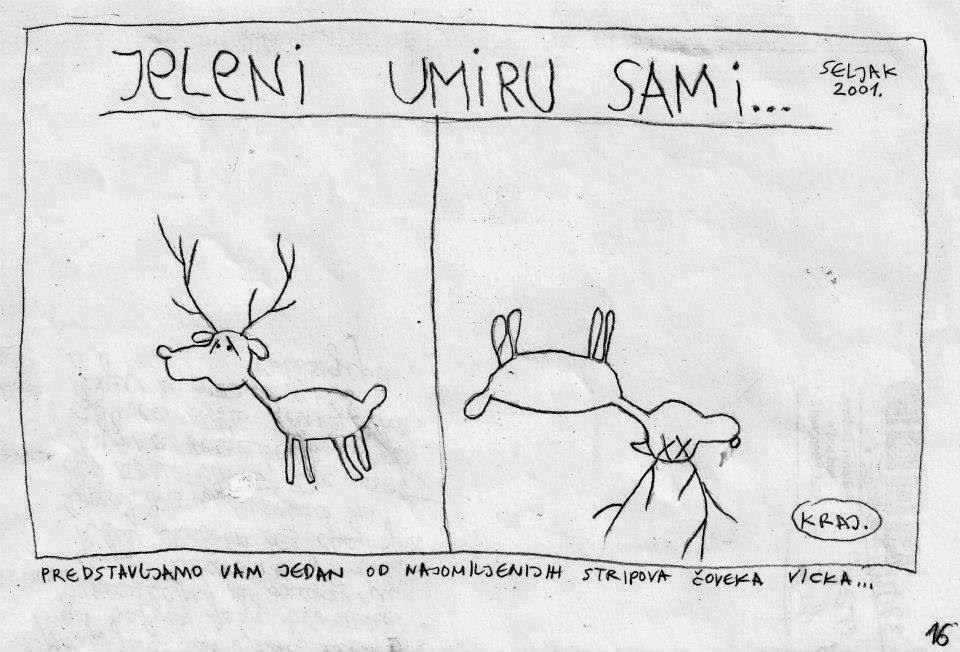 JELENI UMIRU SAMI...
SELJAK
2001.
KRAJ.
PREDSTAVLJAMO VAM JEDAN OD NAJOMILJENIJIH STRIPOVA ČOVEKA VICKA...
16